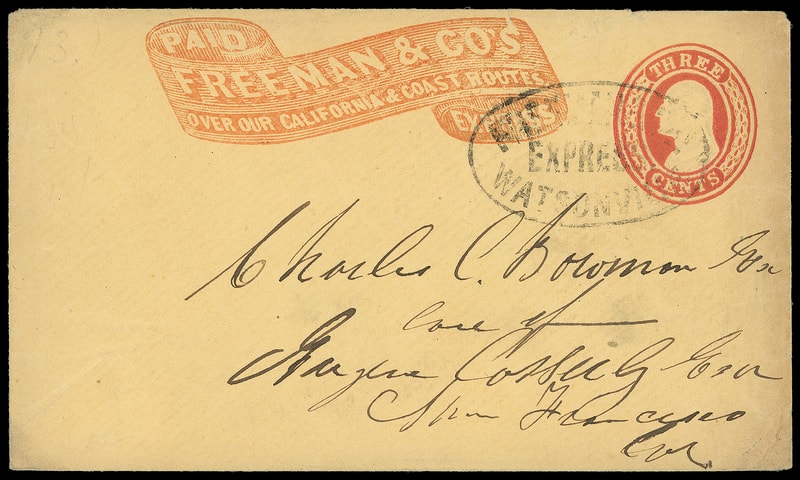 PAID
FREEMAN & CO'S
OVER OUR CALIFORNIA & COAST ROUTES
EXPRESS
THREE
CENTS
EXPRESS
WATSONVILLE
Charles C. Bowman Esq
Care of
Esqr
San Francisco
Cal